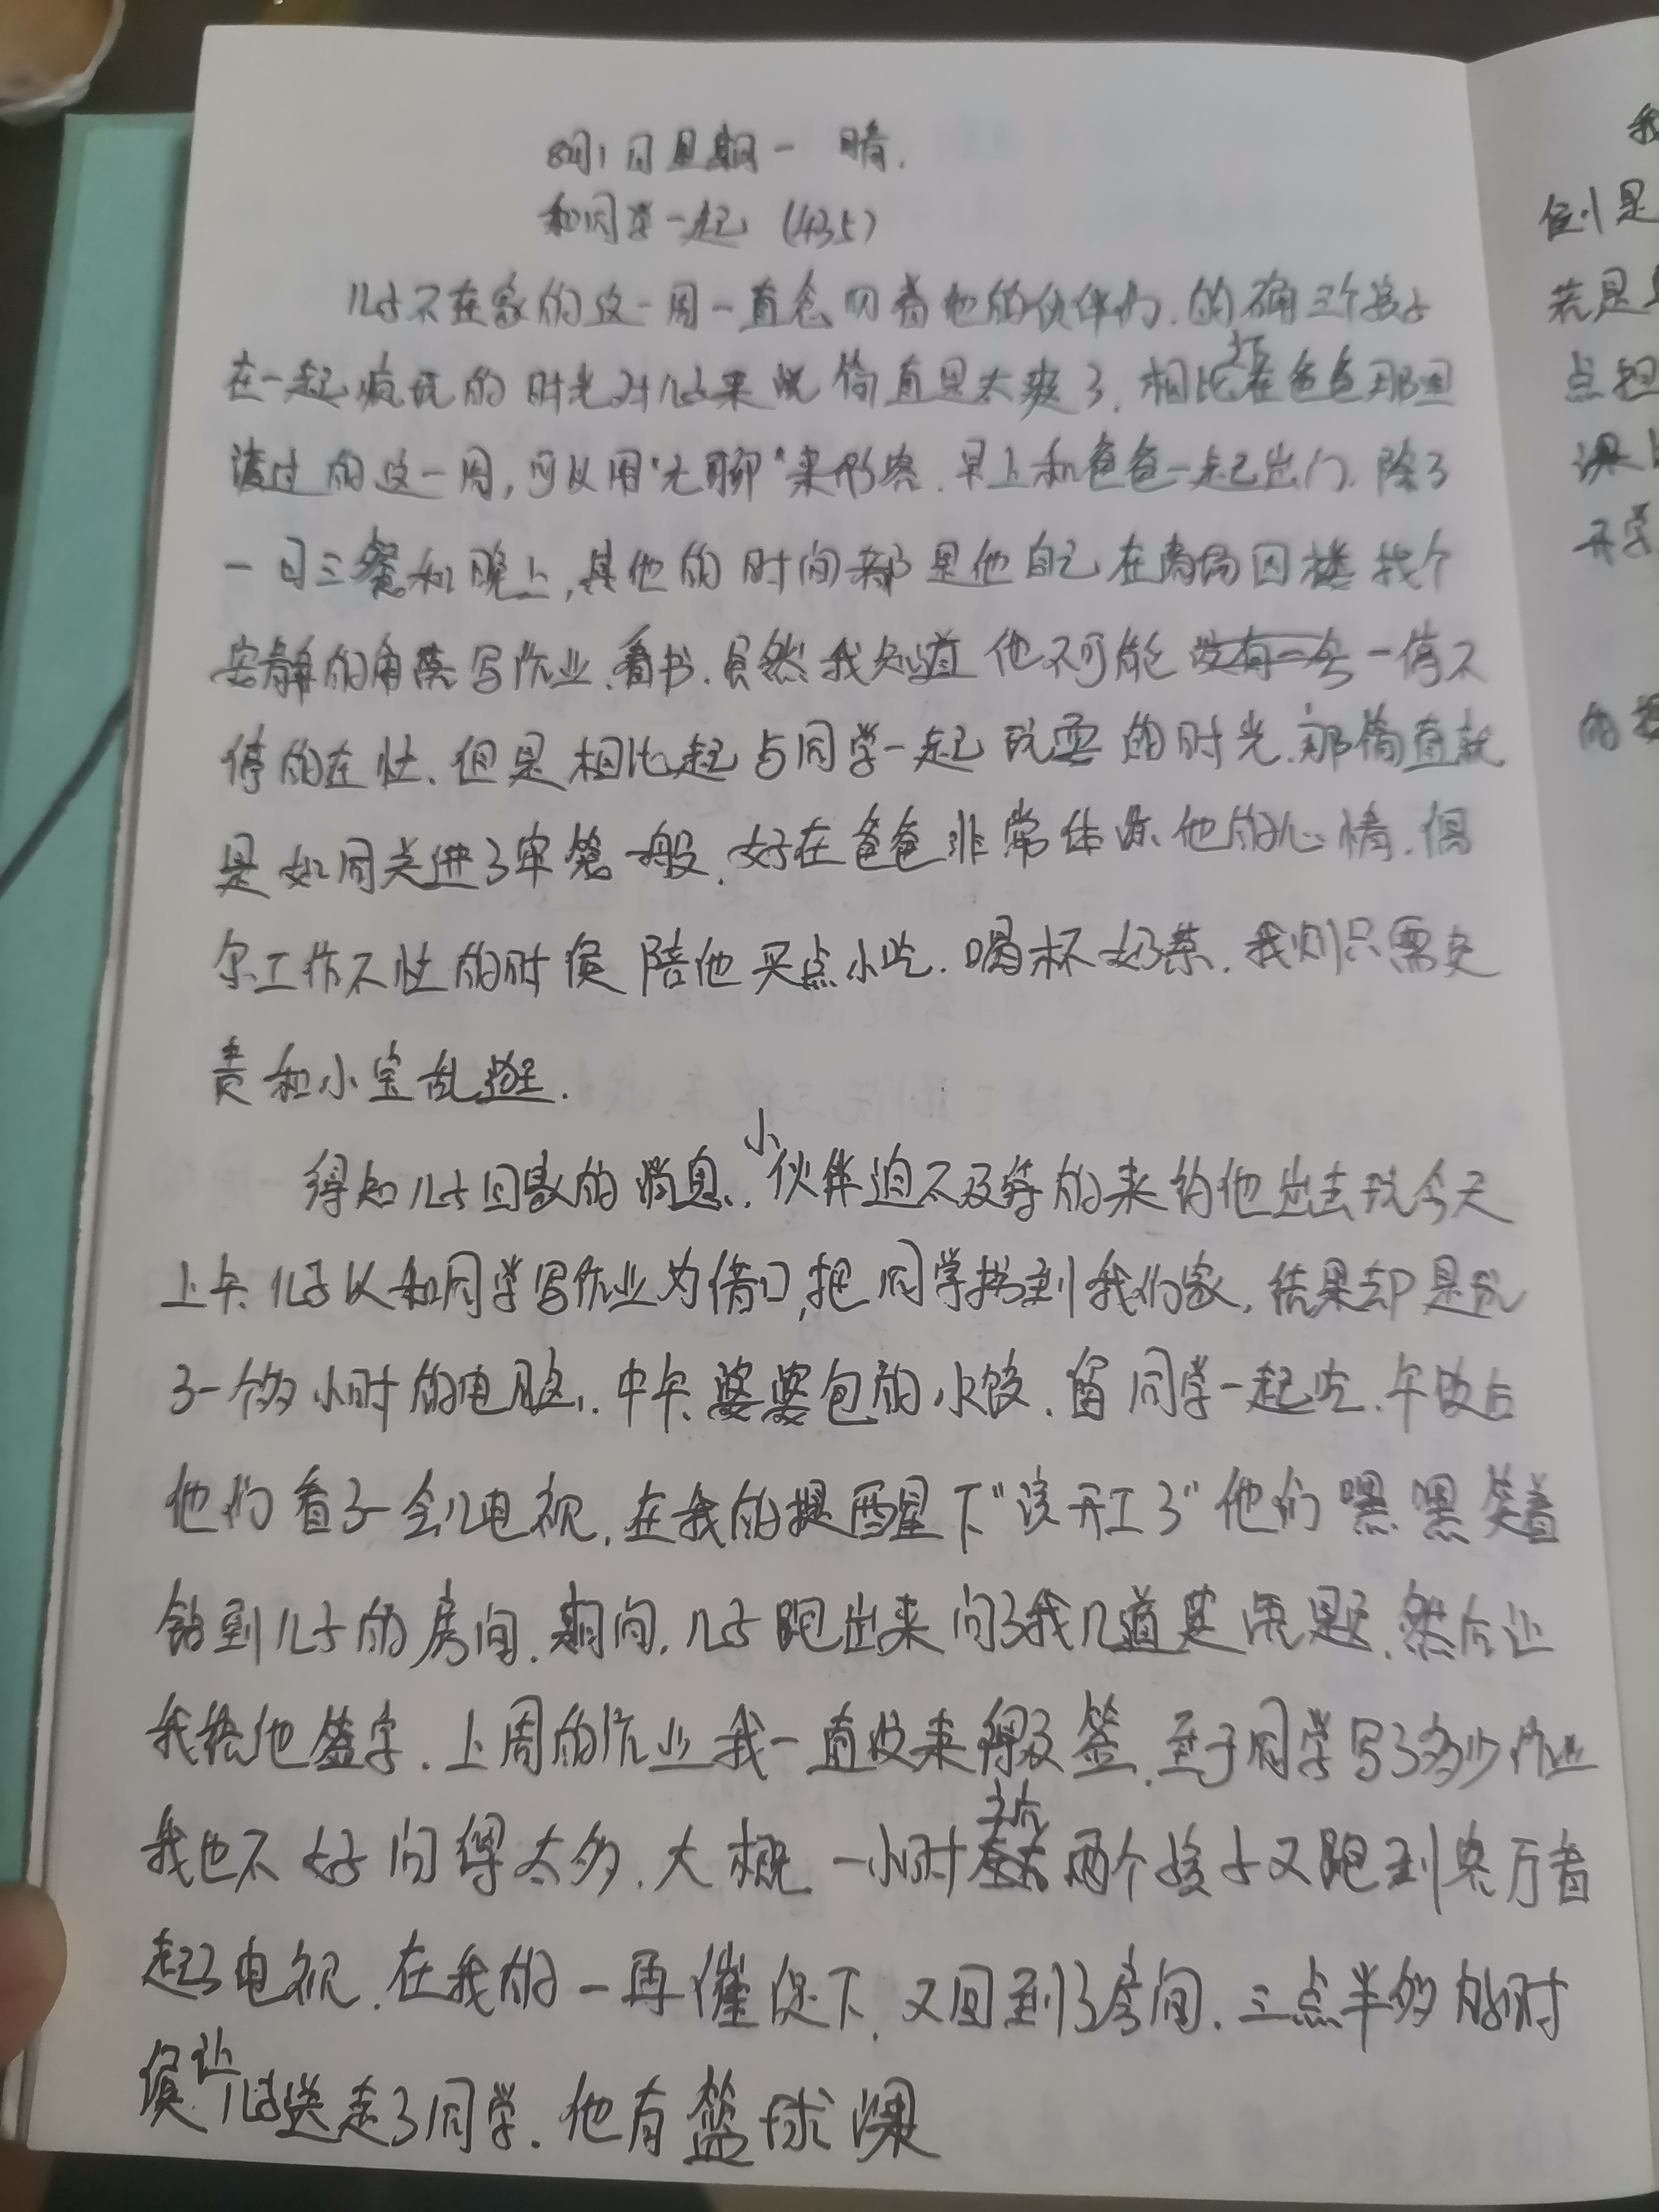 8月1日星期一 晴.
和同学一起 (435)
儿子不在家的这一周一直念叨着他的伙伴们.的确三个孩子
在一起疯玩的时光对儿子来说简直是太爽了.相比于在爸爸那里
渡过的这一周,可以用"无聊"来形容.早上和爸爸一起出门.除了
一日三餐和晚上,其他的时间都是他自己在商场四楼找个
安静的角落写作业.看书.虽然我知道他不可能一停不
停的在忙.但是相比起与同学一起玩耍的时光.那简直就
是如同关进了牢笼一般.好在爸爸非常体谅他的心情.偶
尔工作不忙的时侯陪他买点小吃.喝杯奶茶.我则只需负
责和小宝乱逛.
得知儿子回家的消息.小伙伴迫不及待的来约他出去玩今天
上午.儿子以和同学写作业为借口,把同学拐到我们家.结果却是玩
了一个多小时的电脑.中午.婆婆包的水饺.留同学一起吃.午饭后
他们看了一会儿电视.在我的提醒下"该开工了"他们嘿嘿笑着
钻到儿子的房间.期间.儿子跑出来问了我几道英语题.然后让
我给他签字.上周的作业我一直没来得及签.至于同学写了多少作业
我也不好问得太多.大概一小时 两个孩子又跑到客厅看
起了电视.在我的一再催促下.又回到了房间.三点半多的时
侯让儿子送走了同学.他有篮球课
我
倒是
若是
点担
课
开学
的